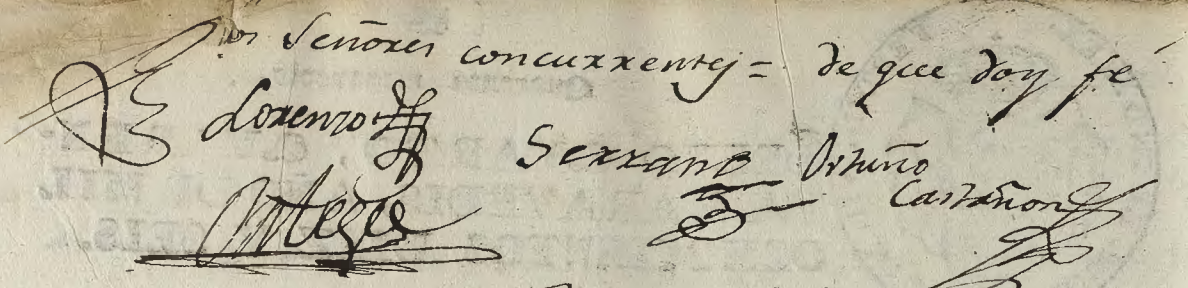 los Señores concurrentes = de que doy fé
Lorenzo Serrano Ortuño
Castañon
Ortega